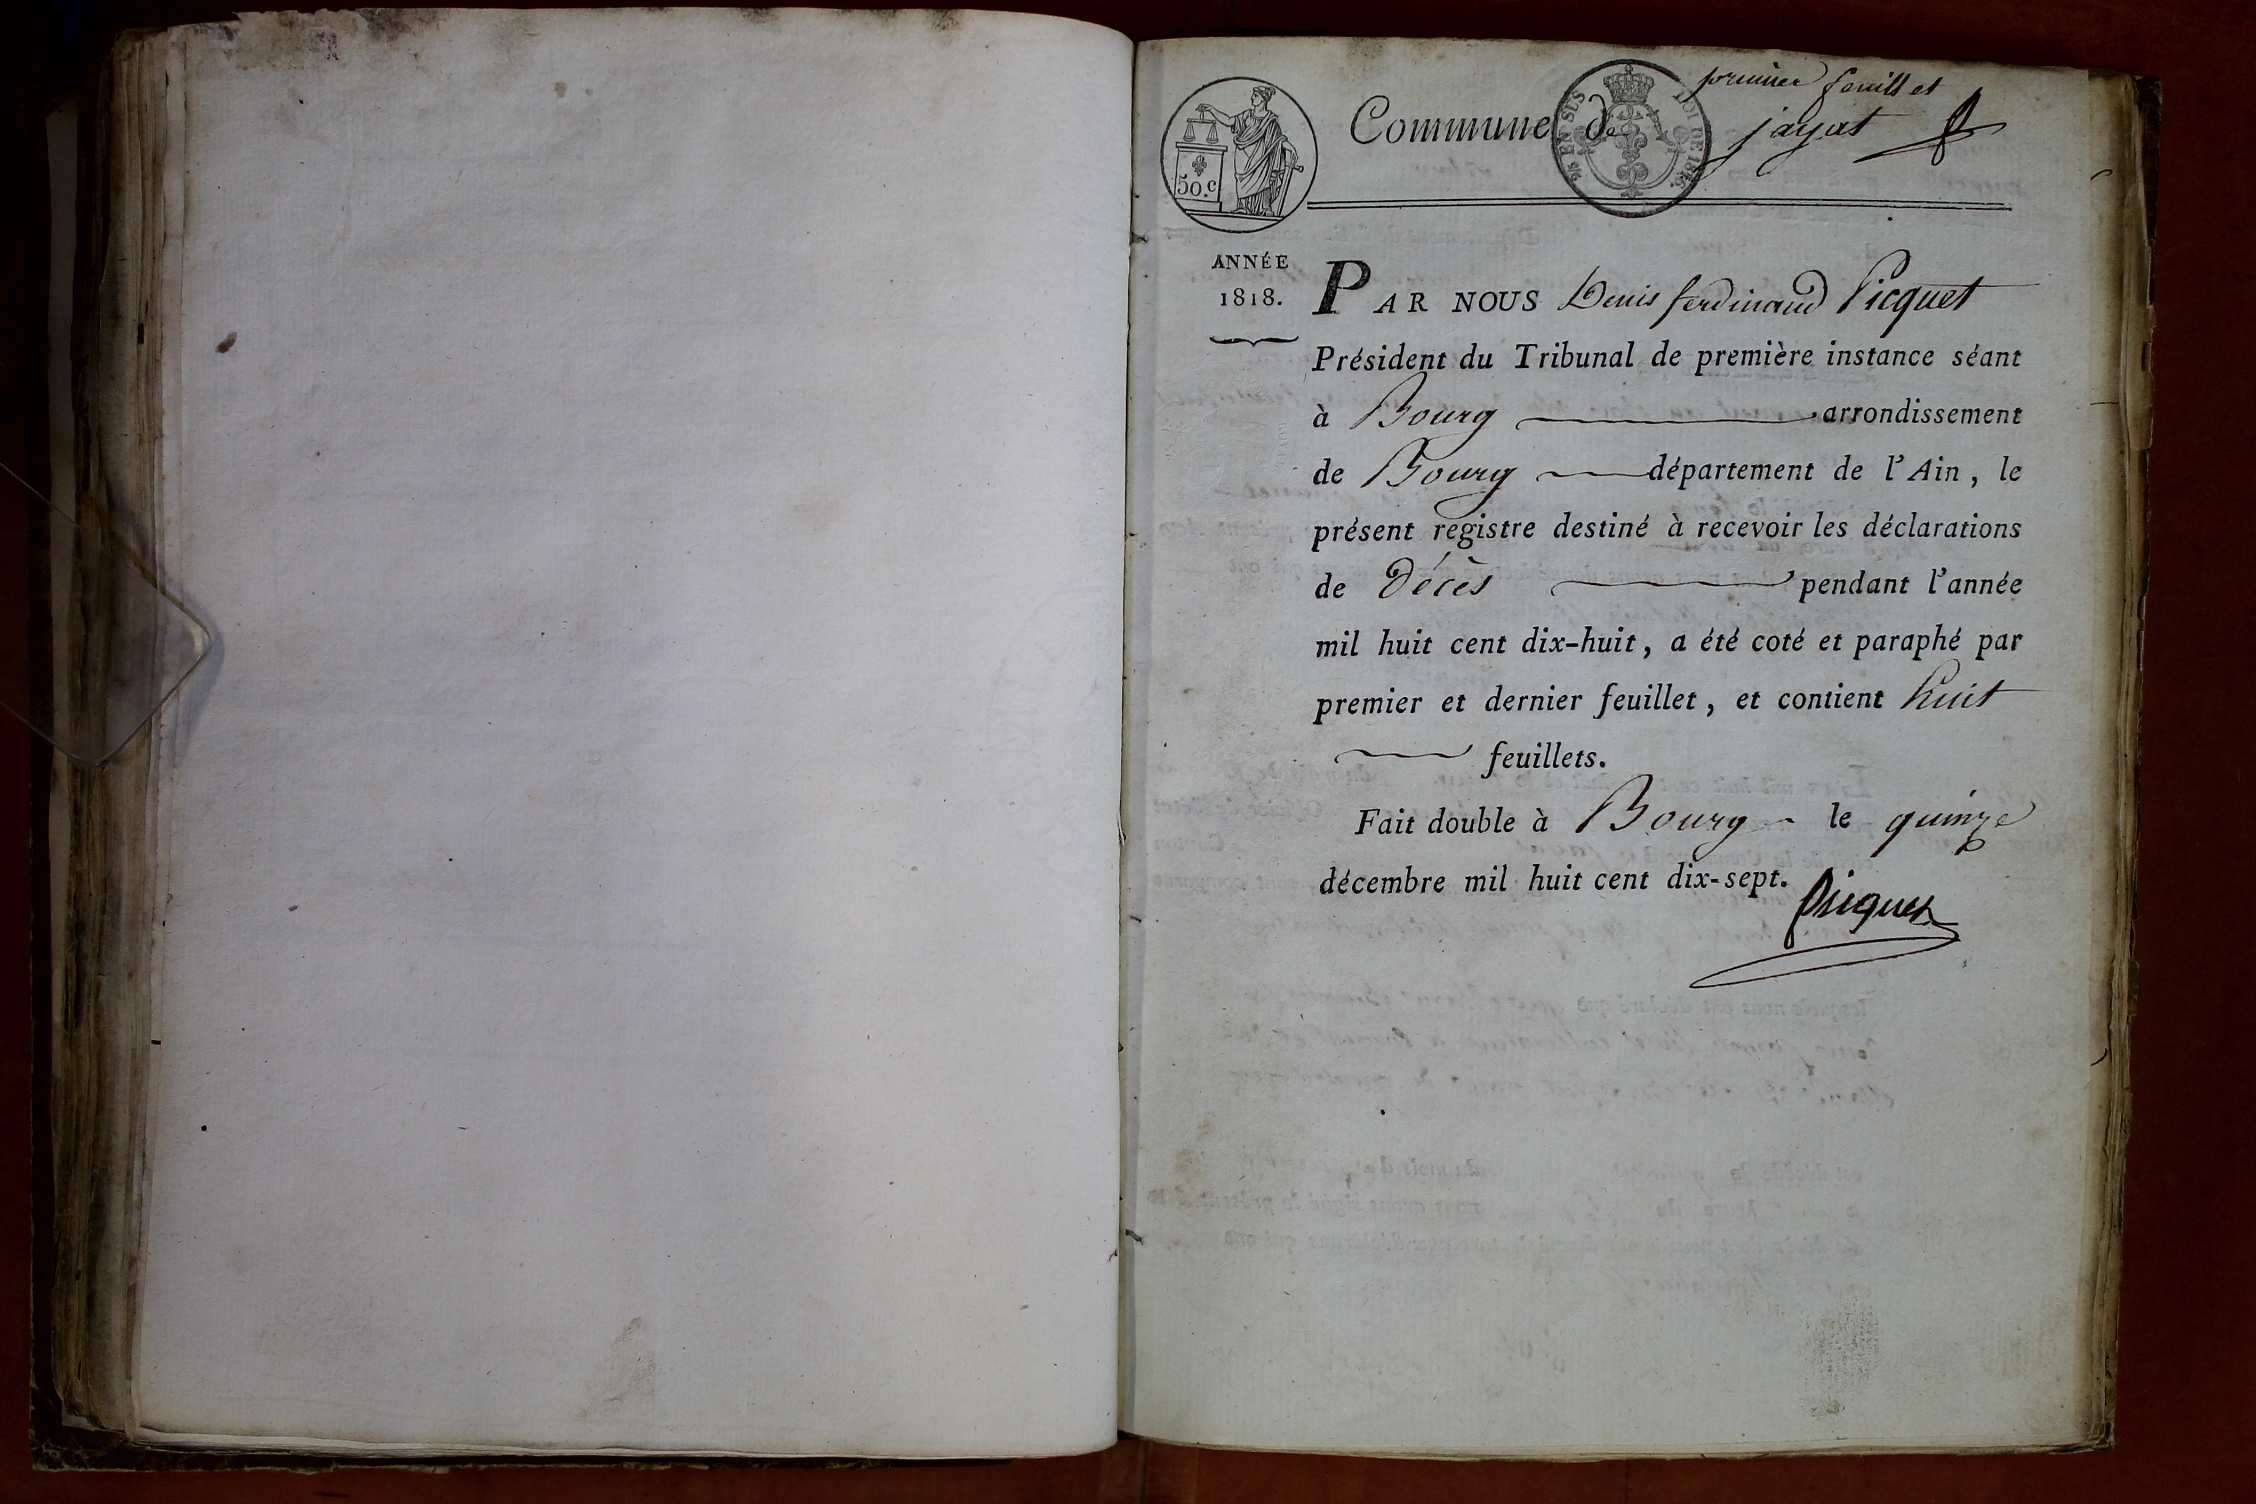 premier feuillet
Commune de jayat
50.c
EN SUS
LOI DE 1816.
ANNÉE
1818.
PAR NOUS Denis ferdinand Picquet
Président du Tribunal de première instance séant
à Bourg arrondissement
de Bourg département de l'Ain, le
présent registre destiné à recevoir les déclarations
de Décès pendant l'année
mil huit cent dix-huit, a été coté et paraphé par
premier et dernier feuillet, et contient huit
feuillets.
Fait double à Bourg le quinze
décembre mil huit cent dix-sept.
Picquet